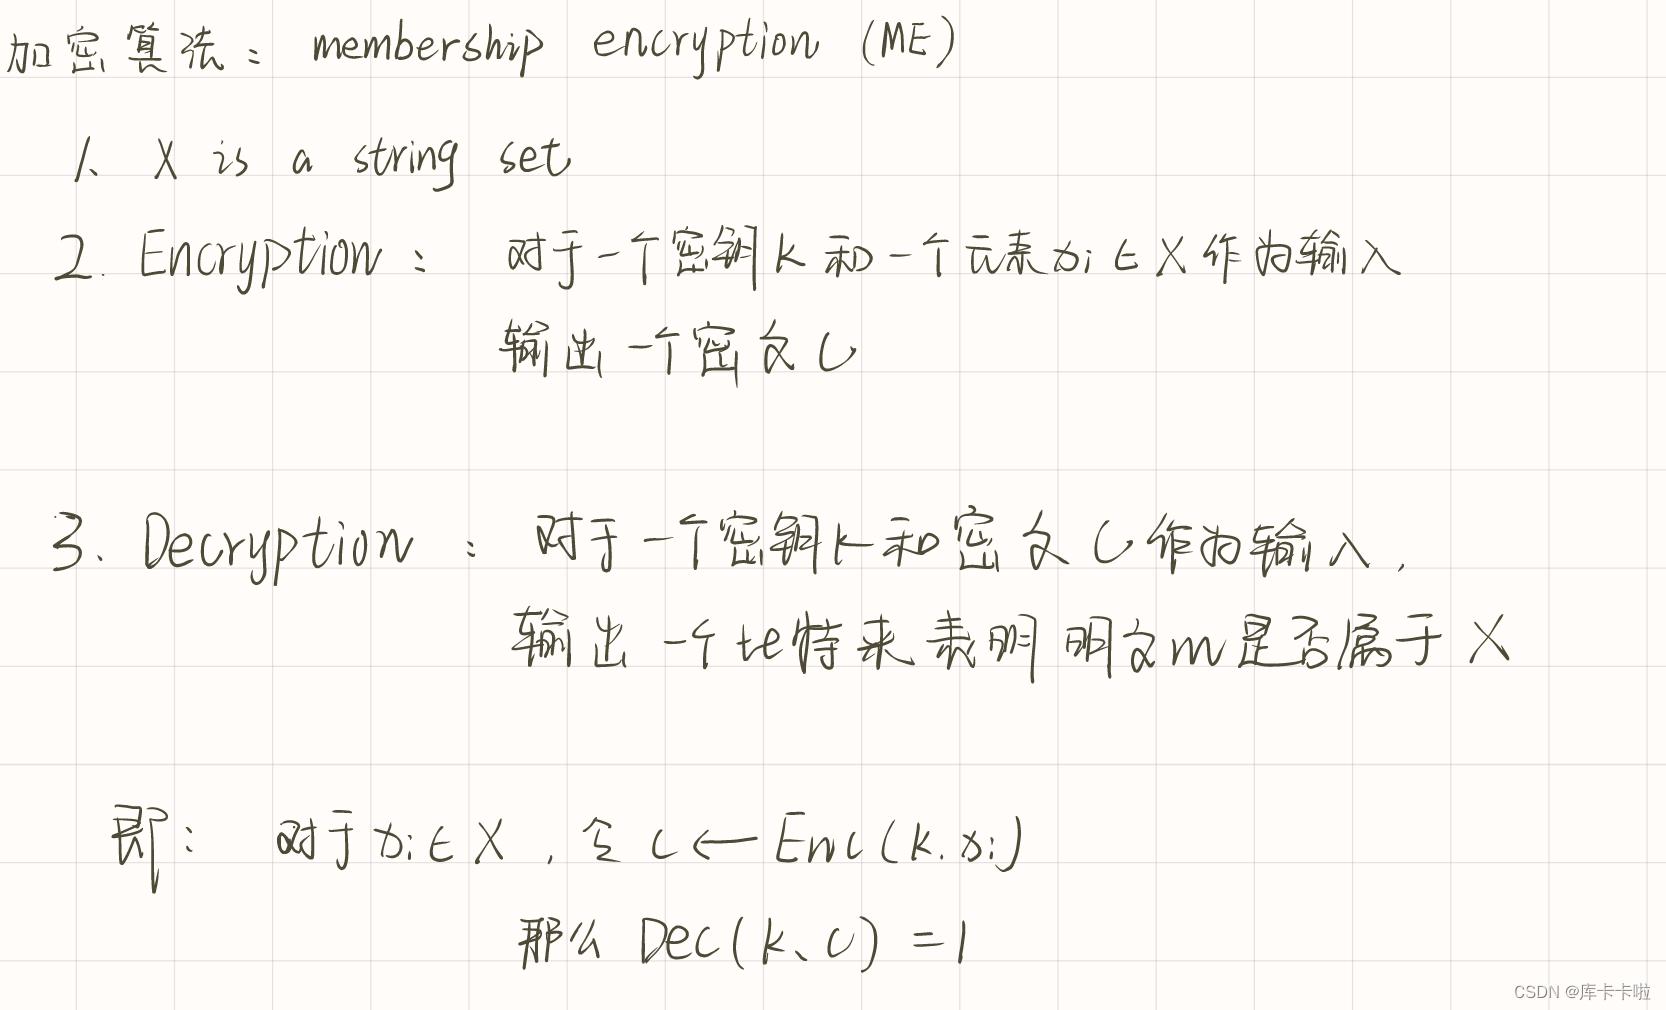 加密算法： membership encryption (ME)
1、 X is a string set
2. Encryption： 对于一个密钥k和一个元素xi∈X作为输入
输出一个密文C
3、 Decryption ： 对于一个密钥k和密文C作为输入，
输出一个比特来表明明文m是否属于X
即： 对于xi∈X，令 c ← Enc(k.xi)
那么 Dec(k、c) = 1
CSDN @库卡卡啦